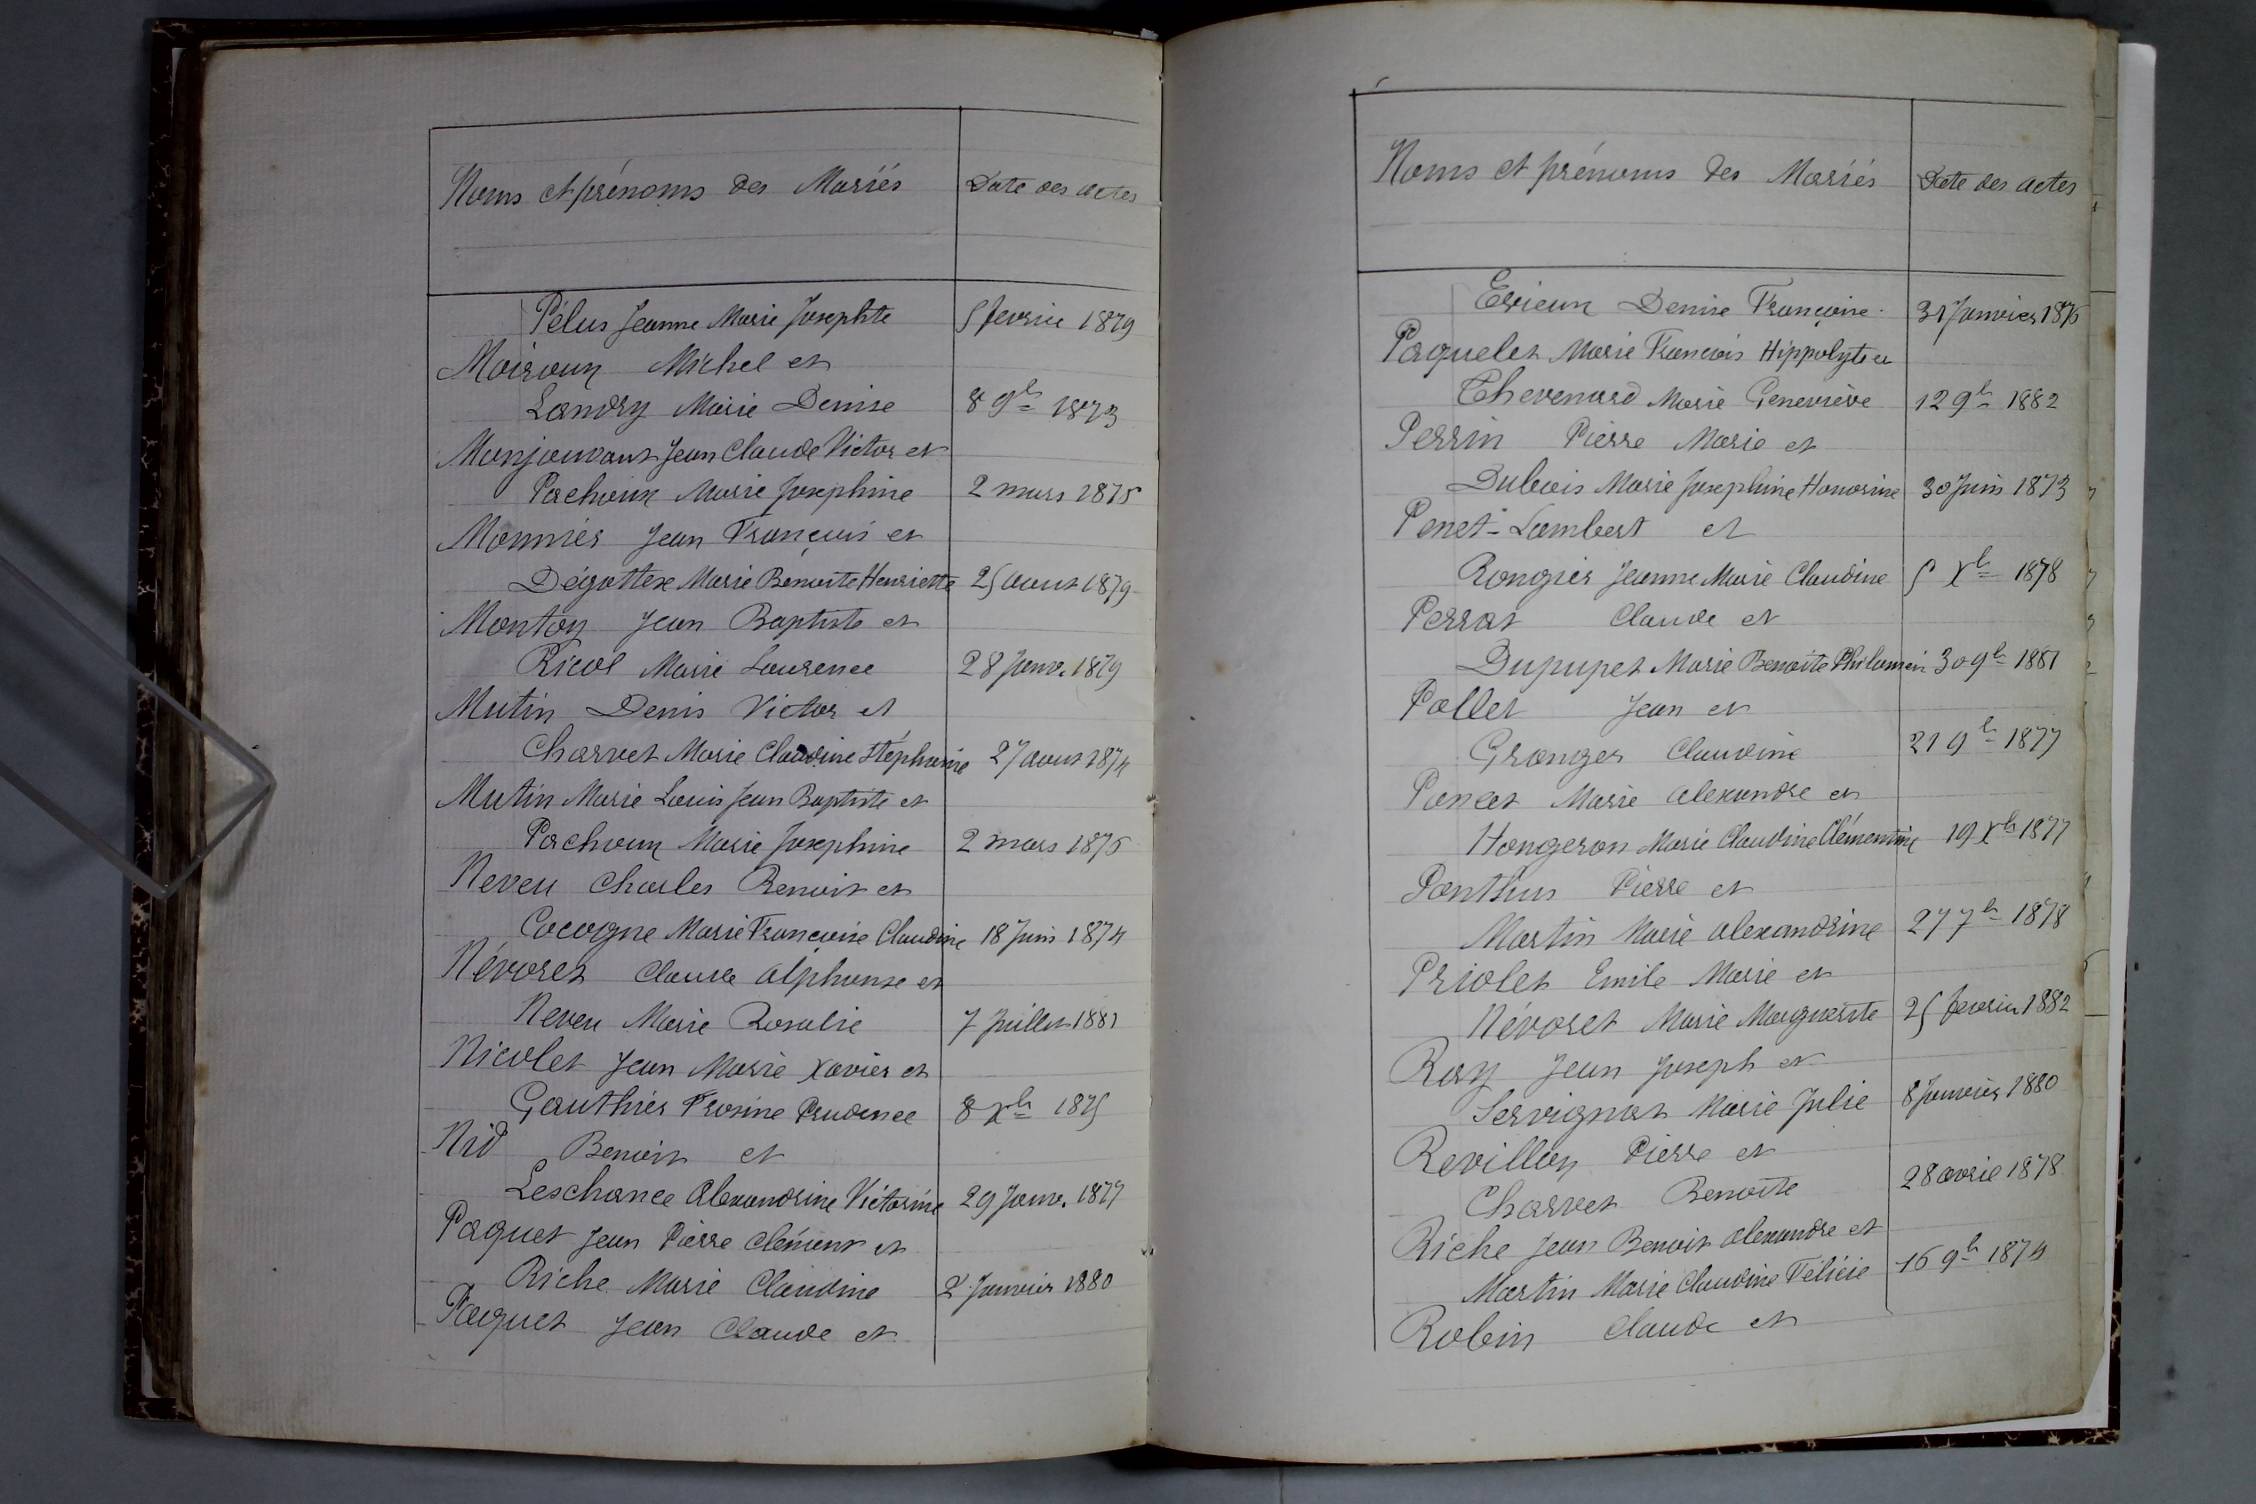 Noms et prénoms des Mariés Date des actes
Pélus Jeanne Marie Josephte 5 fevrier 1879
Moiroux Michel et
Landry Marie Denise 8 9b 1873
Monjouvant Jean Claude Victor et
Pachoux Marie Josephine 2 mars 1875
Monnier Jean François et
Dégottex Marie Benoite Henriette 25 aout 1879
Montoy Jean Baptiste et
Ricol Marie Laurence 28 Janv. 1879
Mutin Denis Victor et
Charvet Marie Claudine Stéphanie 27 aout 1874
Mutin Marie Louis Jean Baptiste et
Pachoux Marie Josephine 2 mars 1875
Neveu Charles Benoit et
Cocogne Marie Francoise Claudine 18 Juin 1874
Névoret Claude Alphonse et
Neveu Marie Rosalie 7 Juillet 1881
Nicolet Jean Marie Xavier et
Gauthier Frosine Prudence 8 Xb 1875
Nid Benoit et
Leschance Alexandrine Victorine 29 Janv. 1877
Paquet Jean Pierre Clément et
Riche Marie Claudine 2 Janvier 1880
Paquet Jean Claude et
Noms et prénoms des Mariés Date des actes
Erieux Denise Françoise 31 Janvier 1876
Paquelet Marie François Hippolyte et
Thevenard Marie Geneviève 12 9b 1882
Perrin Pierre Marie et
Dubois Marie Josephine Honorine 30 Juin 1873
Penet-Lambert et
Rongier Jeanne Marie Claudine 5 Xb 1878
Perrat Claude et
Dupupet Marie Benoite Philomèn 30 9b 1881
Pollet Jean et
Granger Claudine 21 9b 1877
Poncet Marie Alexandre et
Hongeron Marie Claudine Clémentine 19 Xb 1877
Ponthus Pierre et
Martin Marie Alexandrine 27 7b 1878
Priolet Emile Marie et
Névoret Marie Marguerite 25 fevrier 1882
Ray Jean Joseph et
Servignat Marie Julie 8 Janvier 1880
Revillon Pierre et
Charvet Benoite 28 avril 1878
Riche Jean Benoit Alexandre et
Martin Marie Claudine Félicie 16 9b 1874
Robin Claude et